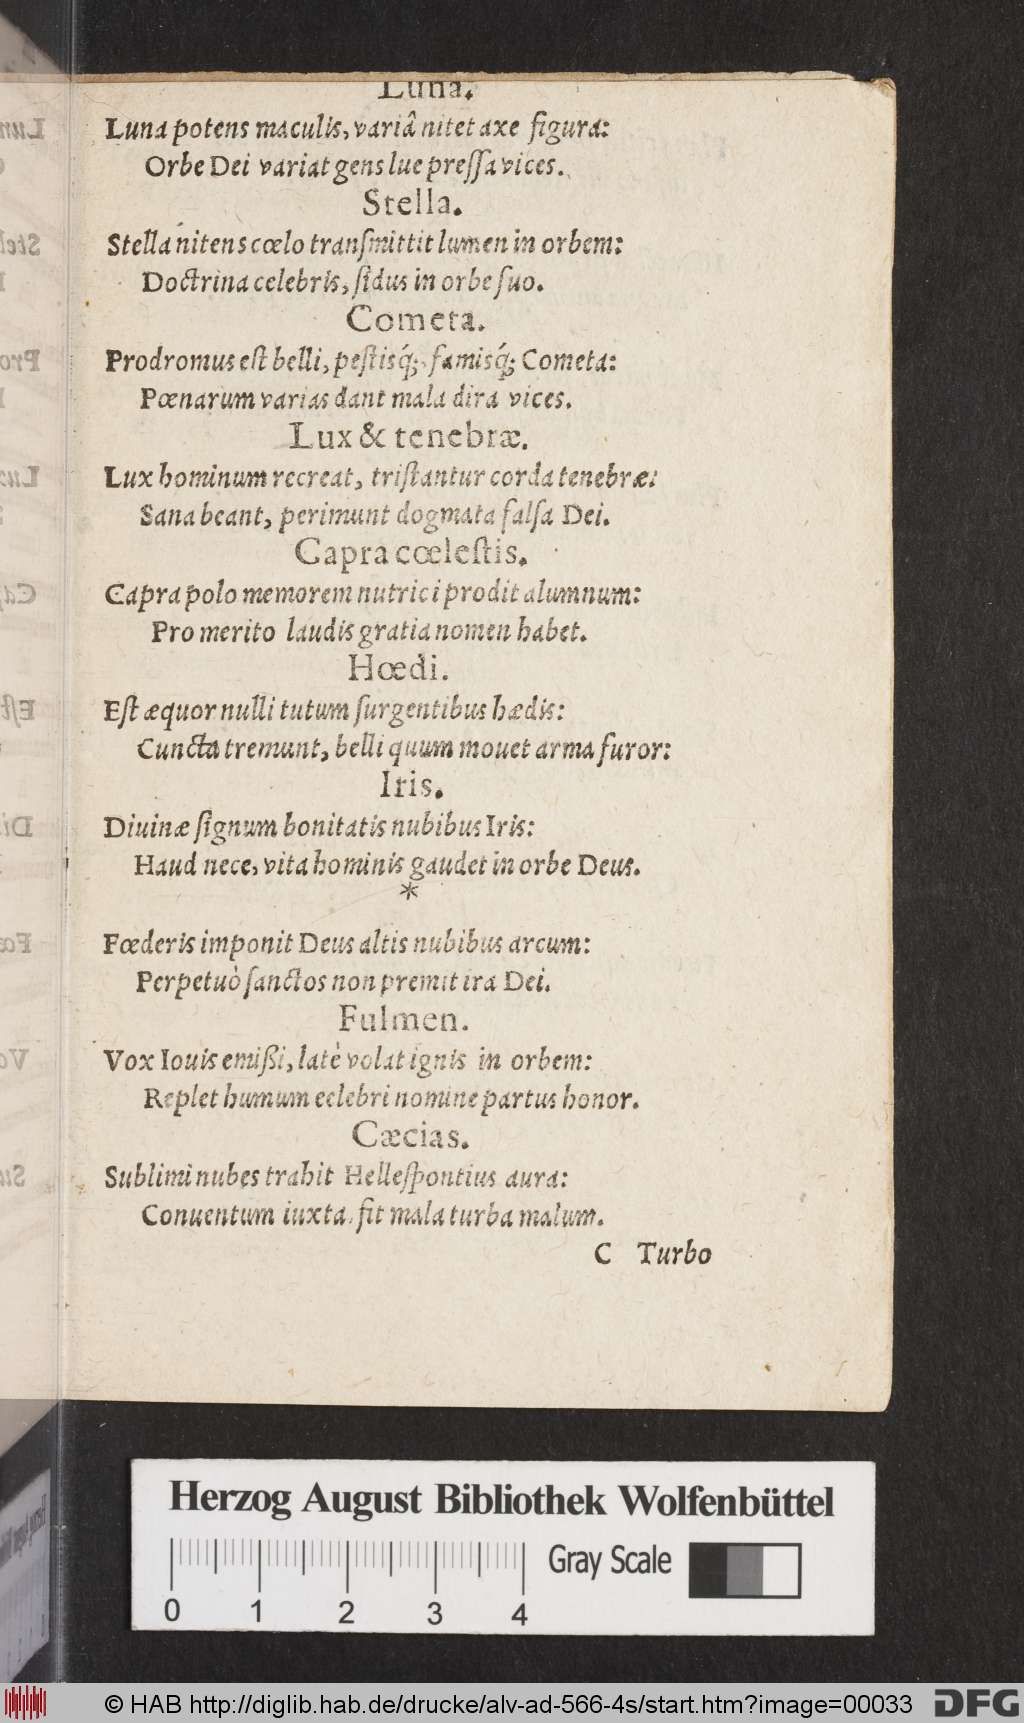 Luna.
Luna potens maculis, variâ nitet axe figura:
Orbe Dei variat gens lue preſſa vices.
Stella.
Stella nitens cœlo tranſmittit lumen in orbem:
Doctrina celebris, ſidus in orbe ſuo.
Cometa.
Prodromus eſt belli, peſtisq́;, famisq́; Cometa:
Pœnarum varias dant mala dira vices.
Lux & tenebræ.
Lux hominum recreat, triſtantur corda tenebræ:
Sana beant, perimunt dogmata falſa Dei.
Capra cœleſtis.
Capra polo memorem nutrici prodit alumnum:
Pro merito laudis gratia nomen habet.
Hœdi.
Eſt æquor nulli tutum ſurgentibus hædis:
Cuncta tremunt, belli quum mouet arma furor:
Iris.
Diuinæ ſignum bonitatis nubibus Iris:
Haud nece, vita hominis gaudet in orbe Deus.
*
Fœderis imponit Deus altis nubibus arcum:
Perpetuò ſanctos non premit ira Dei.
Fulmen.
Vox Iouis emißi, latè volat ignis in orbem:
Replet humum celebri nomine partus honor.
Cæcias.
Sublimi nubes trahit Helleſpontius aura:
Conuentum iuxta fit mala turba malum.
C Turbo
Herzog August Bibliothek Wolfenbüttel
Gray Scale
0 1 2 3 4
© HAB http://diglib.hab.de/drucke/alv-ad-566-4s/start.htm?image=00033
DFG